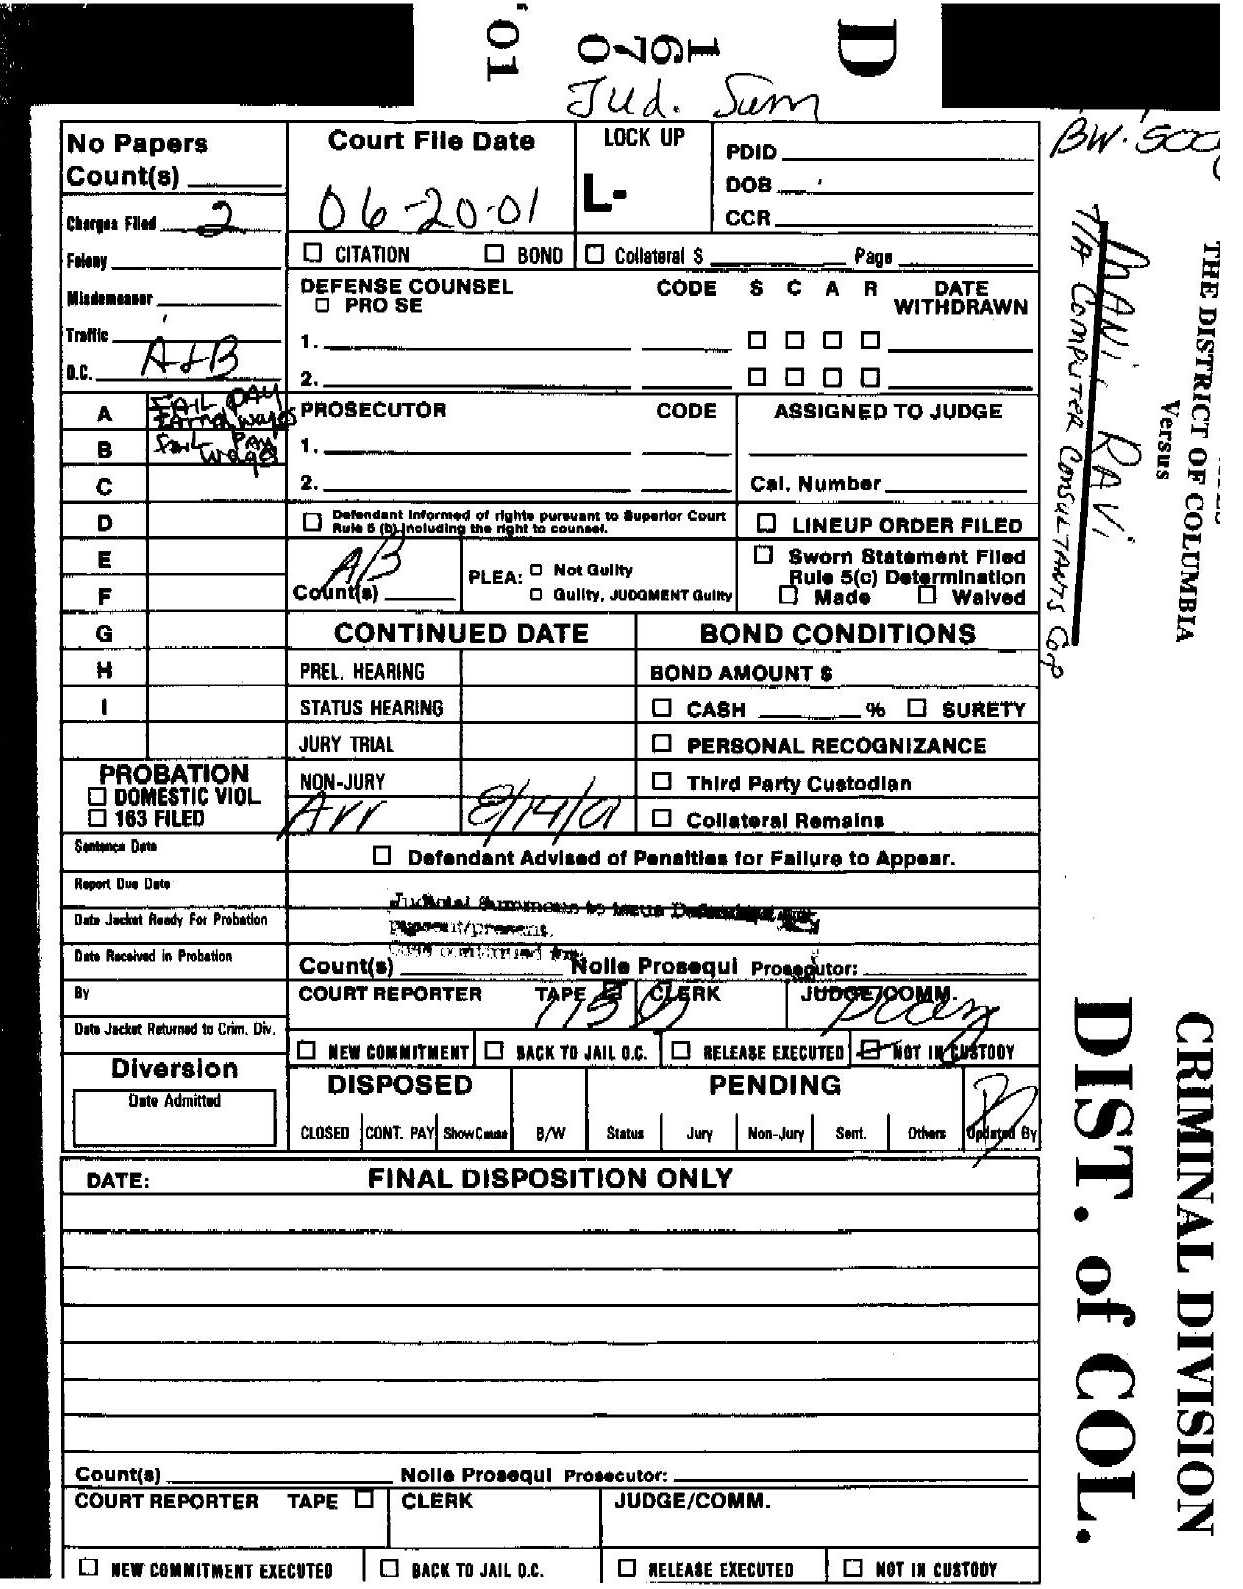 '01
1670
D
Jud. Sum
BW.
No Papers
Count(s)
Court File Date
06-20-01
LOCK UP
L-
PDID
DOB
CCR
Charges Filed 2
Felony
Misdemeanor
Traffic
D.C. A+B
CITATION
BOND
Collateral $
Page
DEFENSE COUNSEL
PRO SE
CODE S C A R DATE WITHDRAWN
1.
2.
A FAIL PAY wages
B FAIL PAY wages
C
D
E
F
G
H
I
PROSECUTOR CODE
1.
2.
ASSIGNED TO JUDGE
Cal. Number
Defendant informed of rights pursuant to Superior Court
Rule 5 (b) including the right to counsel.
LINEUP ORDER FILED
A/B
Count(s)
PLEA: Not Guilty
Guilty, JUDGMENT Guilty
Sworn Statement Filed
Rule 5(c) Determination
Made Waived
CONTINUED DATE
PREL. HEARING
STATUS HEARING
JURY TRIAL
NON-JURY
Arr 8/14/01
BOND CONDITIONS
BOND AMOUNT $
CASH % SURETY
PERSONAL RECOGNIZANCE
Third Party Custodian
Collateral Remains
PROBATION
DOMESTIC VIOL.
163 FILED
Sentence Date
Report Due Date
Date Jacket Ready For Probation
Date Received in Probation
By
Date Jacket Returned to Crim. Div.
Diversion
Date Admitted
Defendant Advised of Penalties for Failure to Appear.
Judicial Summons to issue
Count(s) Nolle Prosequi Prosecutor:
COURT REPORTER TAPE CLERK JUDGE/COMM.
115
NEW COMMITMENT
BACK TO JAIL D.C.
RELEASE EXECUTED
NOT IN CUSTODY
DISPOSED
CLOSED CONT. PAY Show Cause B/W
PENDING
Status Jury Non-Jury Sent. Others Updated By
DATE: FINAL DISPOSITION ONLY
Count(s) Nolle Prosequi Prosecutor:
COURT REPORTER TAPE CLERK JUDGE/COMM.
NEW COMMITMENT EXECUTED
BACK TO JAIL D.C.
RELEASE EXECUTED
NOT IN CUSTODY
THE DISTRICT OF COLUMBIA
Versus
MANI RAVI
T/A COMPUTER CONSULTANTS Corp
CRIMINAL DIVISION
DIST. of COL.